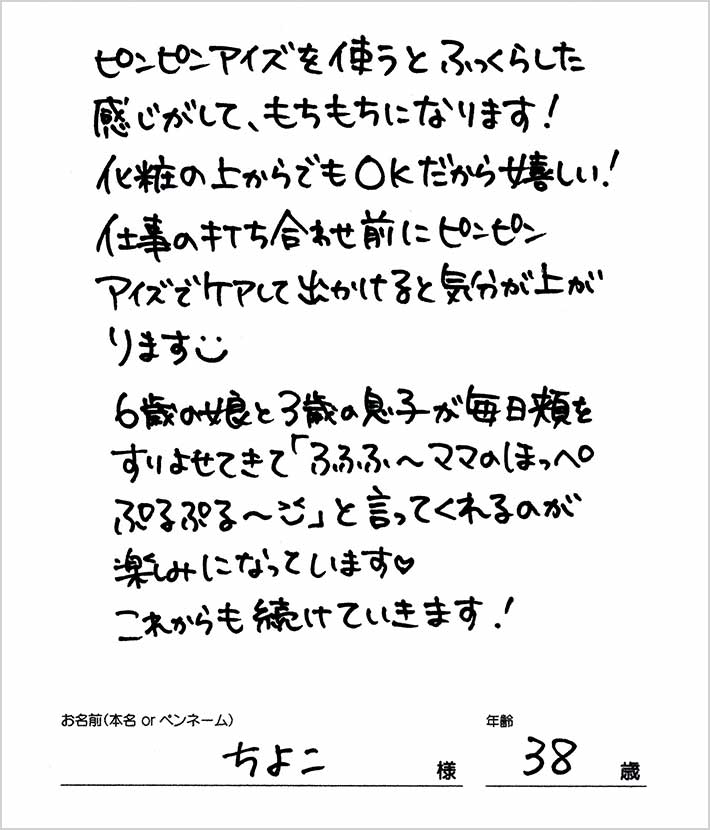 ピンピンアイズを使うとふっくらした
感じがして、もちもちになります!
化粧の上からでもOKだから嬉しい!
仕事の打ち合わせ前にピンピン
アイズでケアして出かけると気分が上が
ります
6歳の娘と3歳の息子が毎日頬を
すりよせてきて「ふふふ～ママのほっぺ
ぷるぷる～」と言ってくれるのが
楽しみになっています♡
これからも続けていきます!
お名前(本名 or ペンネーム) 年齢
ちよこ 様 38 歳